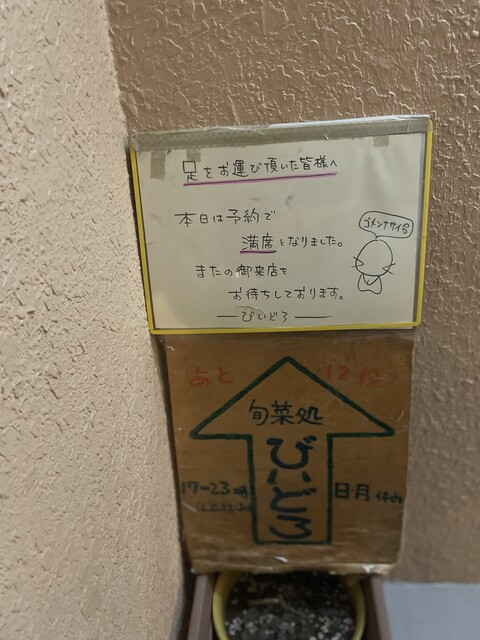 足をお運び頂いた皆様へ
本日は予約で
満席となりました。
またの御来店を
お待ちしております。
びいどろ
ゴメンナサイ
あと 12段
旬菜処
びいどろ
17-23時
日・月